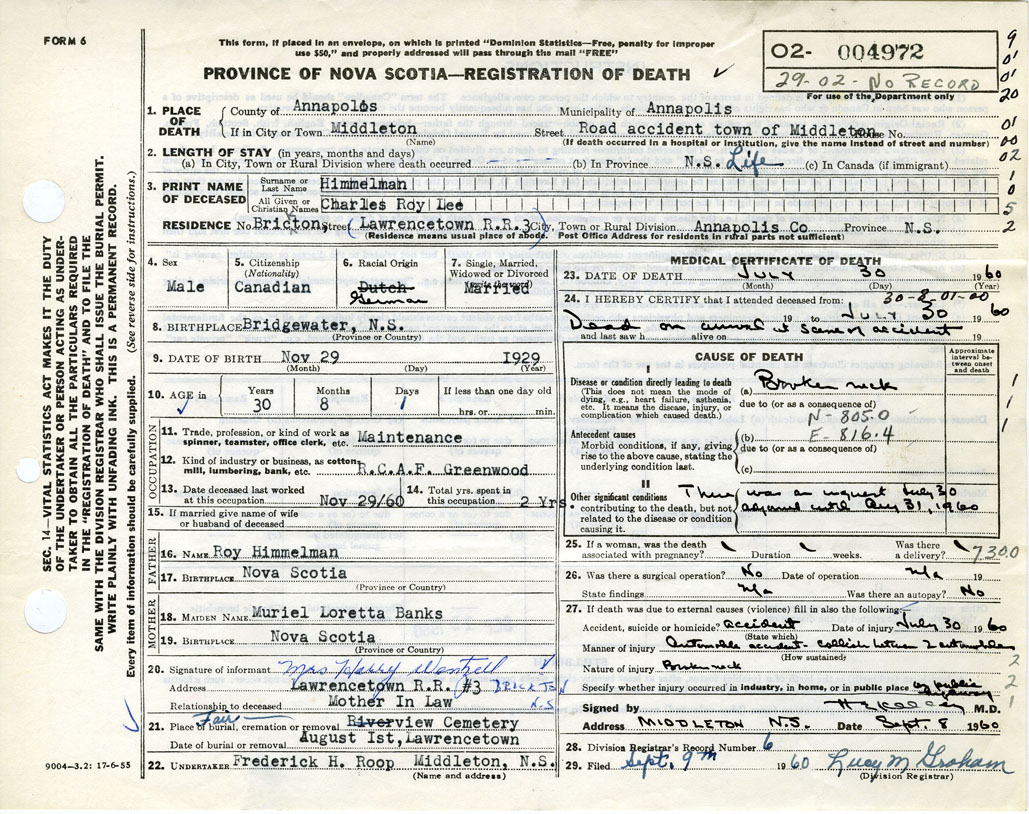 FORM 6
This form, if placed in an envelope, on which is printed "Dominion Statistics—Free, penalty for improper
use $50," and properly addressed will pass through the mail "FREE"
PROVINCE OF NOVA SCOTIA—REGISTRATION OF DEATH ✓
O2- 004972
29-02- NO RECORD
For use of the Department only
1. PLACE OF DEATH
County of Annapolis Municipality of Annapolis
If in City or Town Middleton Street Road accident town of Middleton House No.
(Name) (If death occurred in a hospital or institution, give the name instead of street and number)
2. LENGTH OF STAY (in years, months and days)
(a) In City, Town or Rural Division where death occurred (b) In Province N.S. Life (c) In Canada (if immigrant)
3. PRINT NAME OF DECEASED
Surname or Last Name Himmelman
All Given or Christian Names Charles Roy Lee
RESIDENCE No. Brictons Street (Lawrencetown R.R. 3 City, Town or Rural Division Annapolis Co Province N.S.
(Residence means usual place of abode. Post Office Address for residents in rural parts not sufficient)
4. Sex Male
5. Citizenship (Nationality) Canadian
6. Racial Origin Dutch German
7. Single, Married, Widowed or Divorced (write the word) Married
8. BIRTHPLACE Bridgewater, N.S.
(Province or Country)
9. DATE OF BIRTH Nov 29 1929
(Month) (Day) (Year)
10. AGE in ✓ Years 30 Months 8 Days 1 If less than one day old hrs. or min.
OCCUPATION
11. Trade, profession, or kind of work as spinner, teamster, office clerk, etc. Maintenance
12. Kind of industry or business, as cotton mill, lumbering, bank, etc. R.C.A.F. Greenwood
13. Date deceased last worked at this occupation Nov 29/60
14. Total yrs. spent in this occupation 2 Yrs.
15. If married give name of wife or husband of deceased
FATHER
16. NAME Roy Himmelman
17. BIRTHPLACE Nova Scotia
(Province or Country)
MOTHER
18. MAIDEN NAME Muriel Loretta Banks
19. BIRTHPLACE Nova Scotia
(Province or Country)
20. Signature of informant Mrs Harry Wentzell ✓
Address Lawrencetown R.R. #3 BRICKTON N.S.
Relationship to deceased Mother In Law
21. Place of burial, cremation or removal Fair Riverview Cemetery
Date of burial or removal August Ist, Lawrencetown
22. UNDERTAKER Frederick H. Roop Middleton, N.S.
(Name and address)
MEDICAL CERTIFICATE OF DEATH
23. DATE OF DEATH JULY 30 1960
(Month) (Day) (Year)
24. I HEREBY CERTIFY that I attended deceased from: 30-8-01-00
19 to JULY 30 1960
Dead on arrival at scene of accident
and last saw h alive on 19
CAUSE OF DEATH
Approximate interval between onset and death
I
Disease or condition directly leading to death
(This does not mean the mode of dying, e.g., heart failure, asthenia, etc. It means the disease, injury, or complication which caused death.)
(a) Broken neck
due to (or as a consequence of)
N-805.0
Antecedent causes
Morbid conditions, if any, giving rise to the above cause, stating the underlying condition last.
(b) E-816.4
due to (or as a consequence of)
(c)
II
Other significant conditions
contributing to the death, but not related to the disease or condition causing it.
There was an inquest July 30
adjourned until Aug 31, 1960
25. If a woman, was the death associated with pregnancy? Duration weeks. Was there a delivery? 7300
26. Was there a surgical operation? No Date of operation n/a 19
State findings n/a Was there an autopsy? No
27. If death was due to external causes (violence) fill in also the following:
Accident, suicide or homicide? accident Date of injury July 30 1960
(State which)
Manner of injury Automobile accident - collision between 2 automobiles
(How sustained)
Nature of injury Broken neck
Specify whether injury occurred in industry, in home, or in public place on public highway
Signed by M.D.
Address MIDDLETON N.S. Date Sept. 8 1960
28. Division Registrar's Record Number 6
29. Filed Sept. 9th 1960 Lucy M Graham
(Division Registrar)
SEC. 14—VITAL STATISTICS ACT MAKES IT THE DUTY
OF THE UNDERTAKER OR PERSON ACTING AS UNDER-
TAKER TO OBTAIN ALL THE PARTICULARS REQUIRED
IN THE "REGISTRATION OF DEATH" AND TO FILE THE
SAME WITH THE DIVISION REGISTRAR WHO SHALL ISSUE THE BURIAL PERMIT.
WRITE PLAINLY WITH UNFADING INK. THIS IS A PERMANENT RECORD.
Every item of information should be carefully supplied. (See reverse side for instructions.)
9004—3.2: 17-6-55
9
01
01
20
01
00
02
1
0
5
2
1
1
1
2
2
1